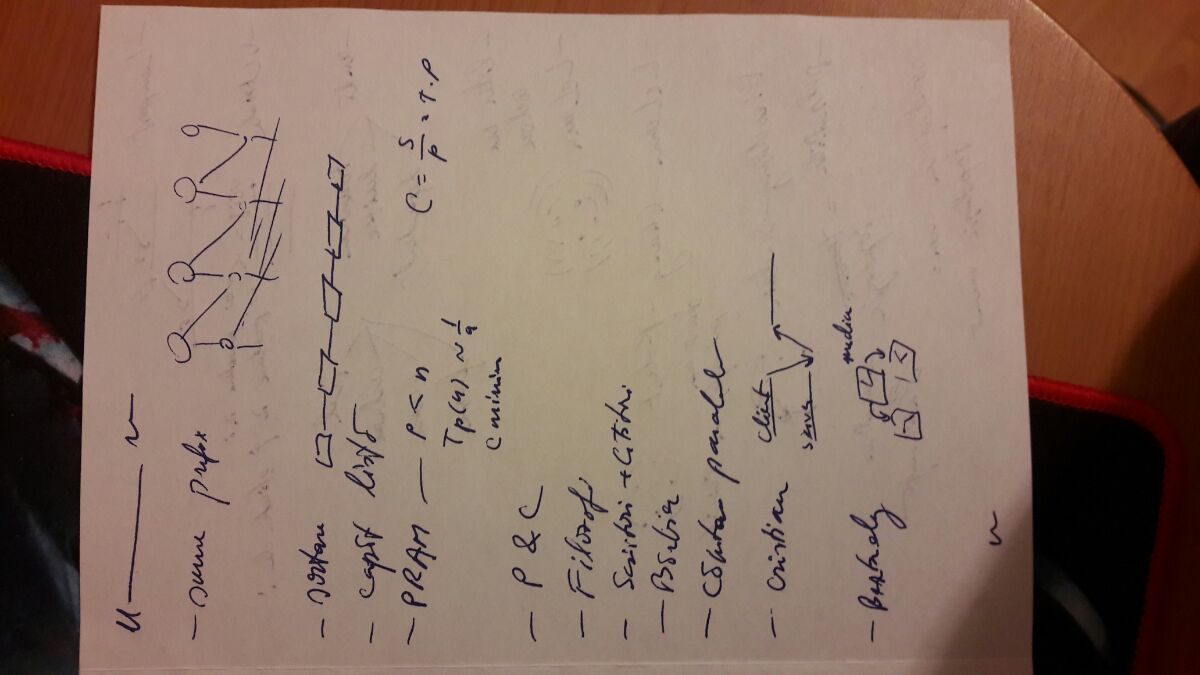 - sume prefix
- sortare
- capăt listă
- PRAM — P < n
C = S/P = T.P
Tp(n) ~ 1/a
C minim
- P & C
- Filozofi
- Scriitori + Cititori
- Bărbier
- Căutare paralelă
- Cristian client
server
media
- Berkeley